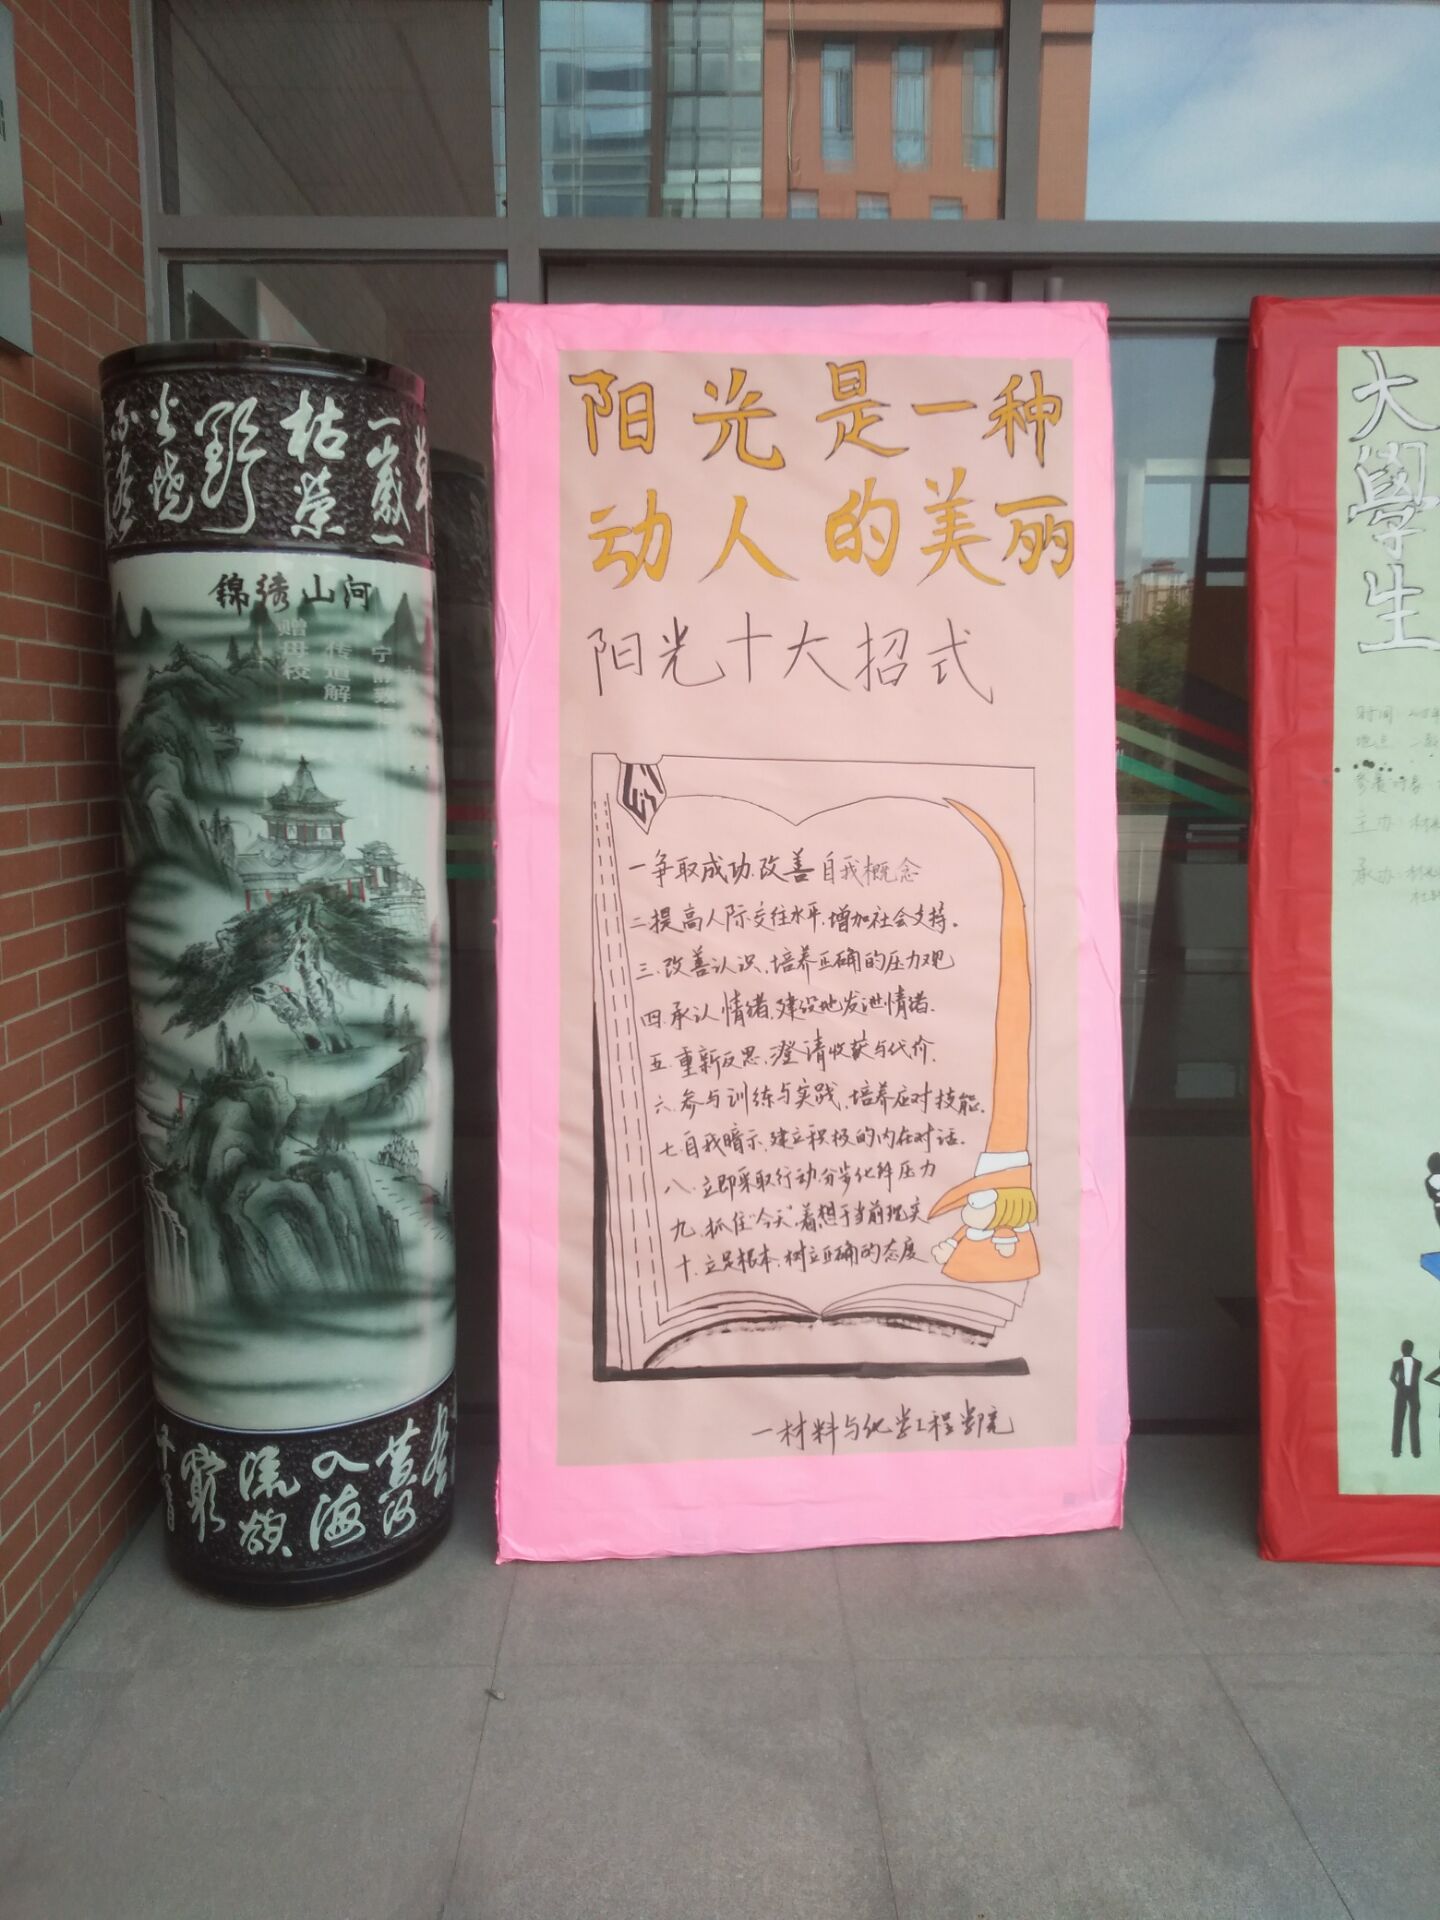 阳光是一种
动人的美丽
阳光十大招式
一争取成功.改善自我概念
二提高人际交往水平.增加社会支持.
三.改善认识.培养正确的压力观
四.承认情绪.建设地发泄情绪.
五.重新反思.澄清收获与代价.
六.参与训练与实践.培养应对技能.
七.自我暗示.建立积极的内在对话.
八.立即采取行动.分步化解压力
九.抓住“今天”.着想于当前现实
十.立足根本.树立正确的态度
一材料与化学工程学院
枯荣
野
锦绣山河
赠母校
传道解
入海
流
大學生
时间
地点
主办
承办